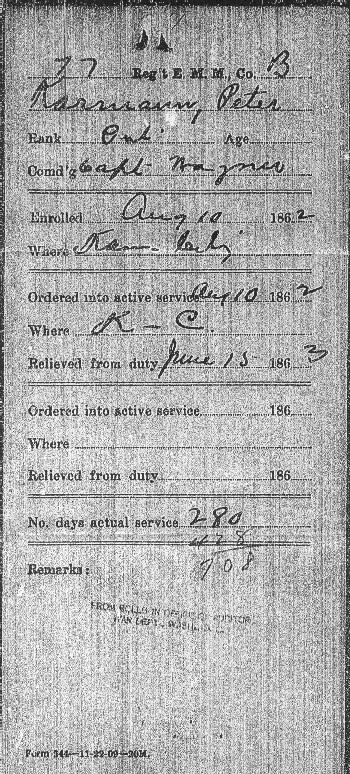 77 Reg't E. M. M., Co. B
Karmann, Peter
Rank Pvt. Age
Comd'g Capt. Wagner
Enrolled Aug 10 1862
Where Kan. City
Ordered into active service Aug 10 1862
Where K - C.
Relieved from duty June 15 1863
Ordered into active service 186
Where
Relieved from duty 186
No. days actual service 280
428
708
Remarks:
FROM ROLLS IN OFFICE AUDITOR
WAR DEPT.
Form 344—11-22-09—20M.